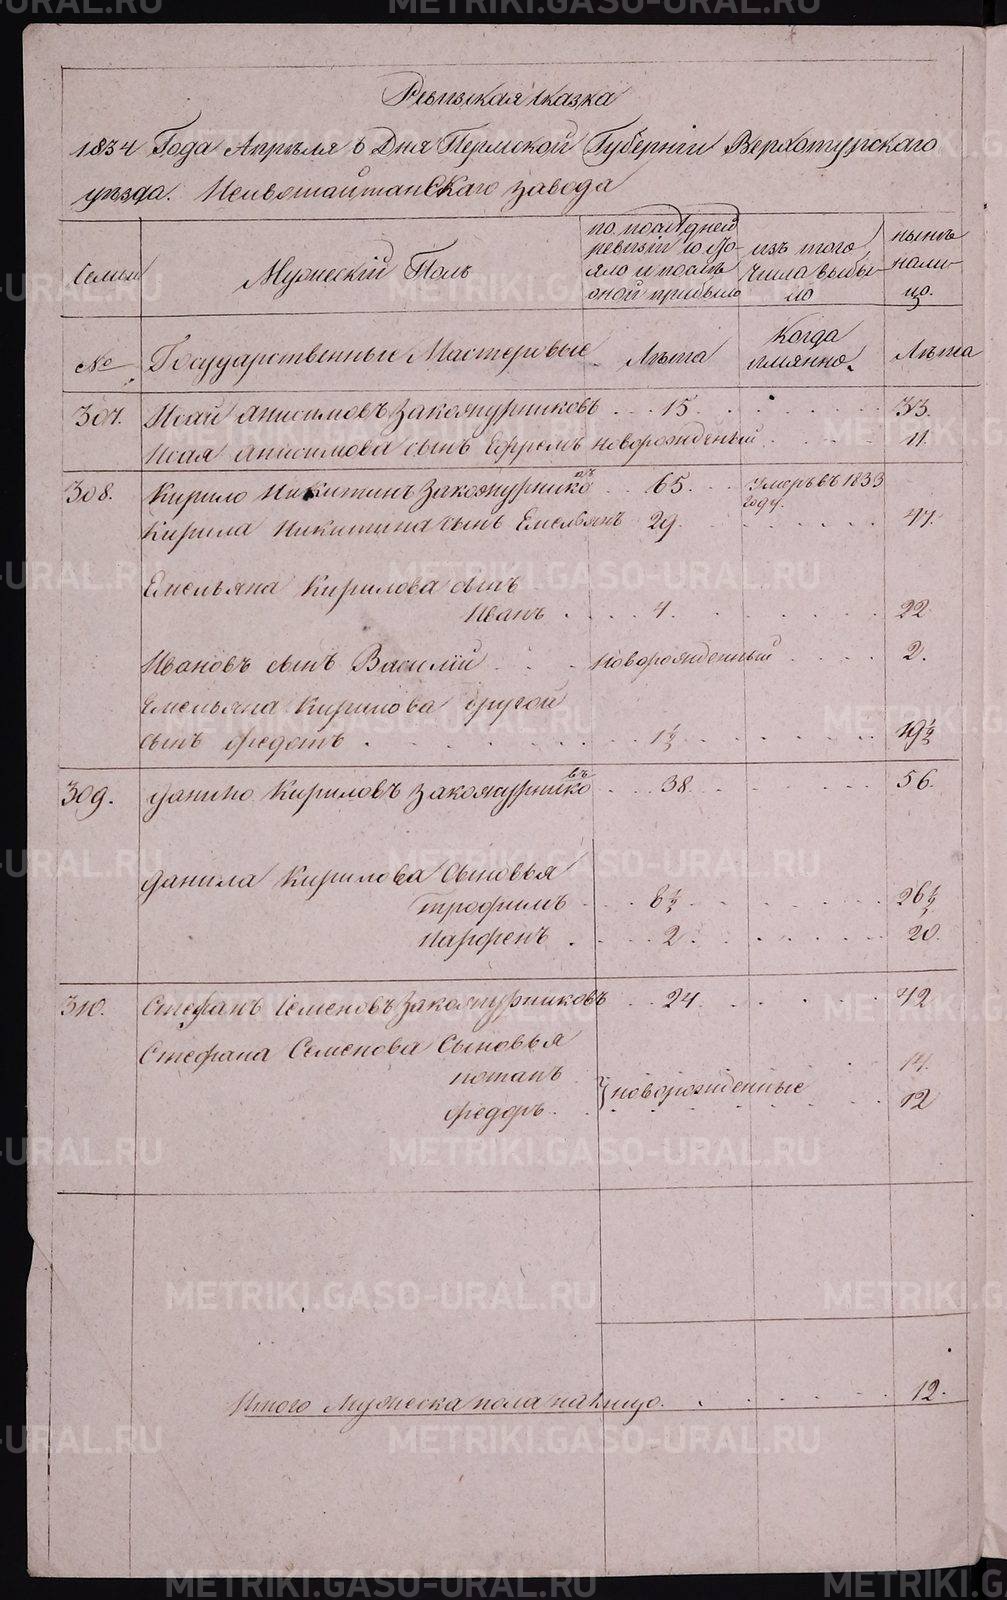 Ревизская сказка
1834 Года Апреля 6 Дня Пермской Губернiи Верхотурскаго
уѣзда. Невьянскаго завода
Семьи
Мужескiй Полъ
по последней ревизiи состояло и после оной прибыло
изъ того числа выбыло
нынѣ налицо.
№
Государственные Мастеровые
Лѣта
Когда имянно.
Лѣта
307. Исай Анисимовъ Закожурниковъ . . 15. 33.
Исая Анисимова сынъ Ефремъ новорожденый 11.
308. Кирило Никитинъ Закожурниковъ . . 65. Умеръ въ 1833 году.
Кирила Никитина сынъ Емельянъ 29. 47.
Емельяна Кирилова сынъ
Иванъ . . . . 4. 22.
Ивановъ сынъ Василiй новорожденный 2.
Емельяна Кирилова другой
сынъ Федотъ . . . 1½ 19½
309. Данило Кириловъ Закожурниковъ . . 38. 56.
Данила Кирилова Сыновья
Трофимъ . . 8½ 26½
Парфенъ . . 2. 20.
310. Стефанъ Семеновъ Закожурниковъ . . 24. 42.
Стефана Семенова Сыновья
потапъ 14.
Федоръ. } новорожденные 12
Итого Мужеска пола налицо. 12.
METRIKI.GASO-URAL.RU